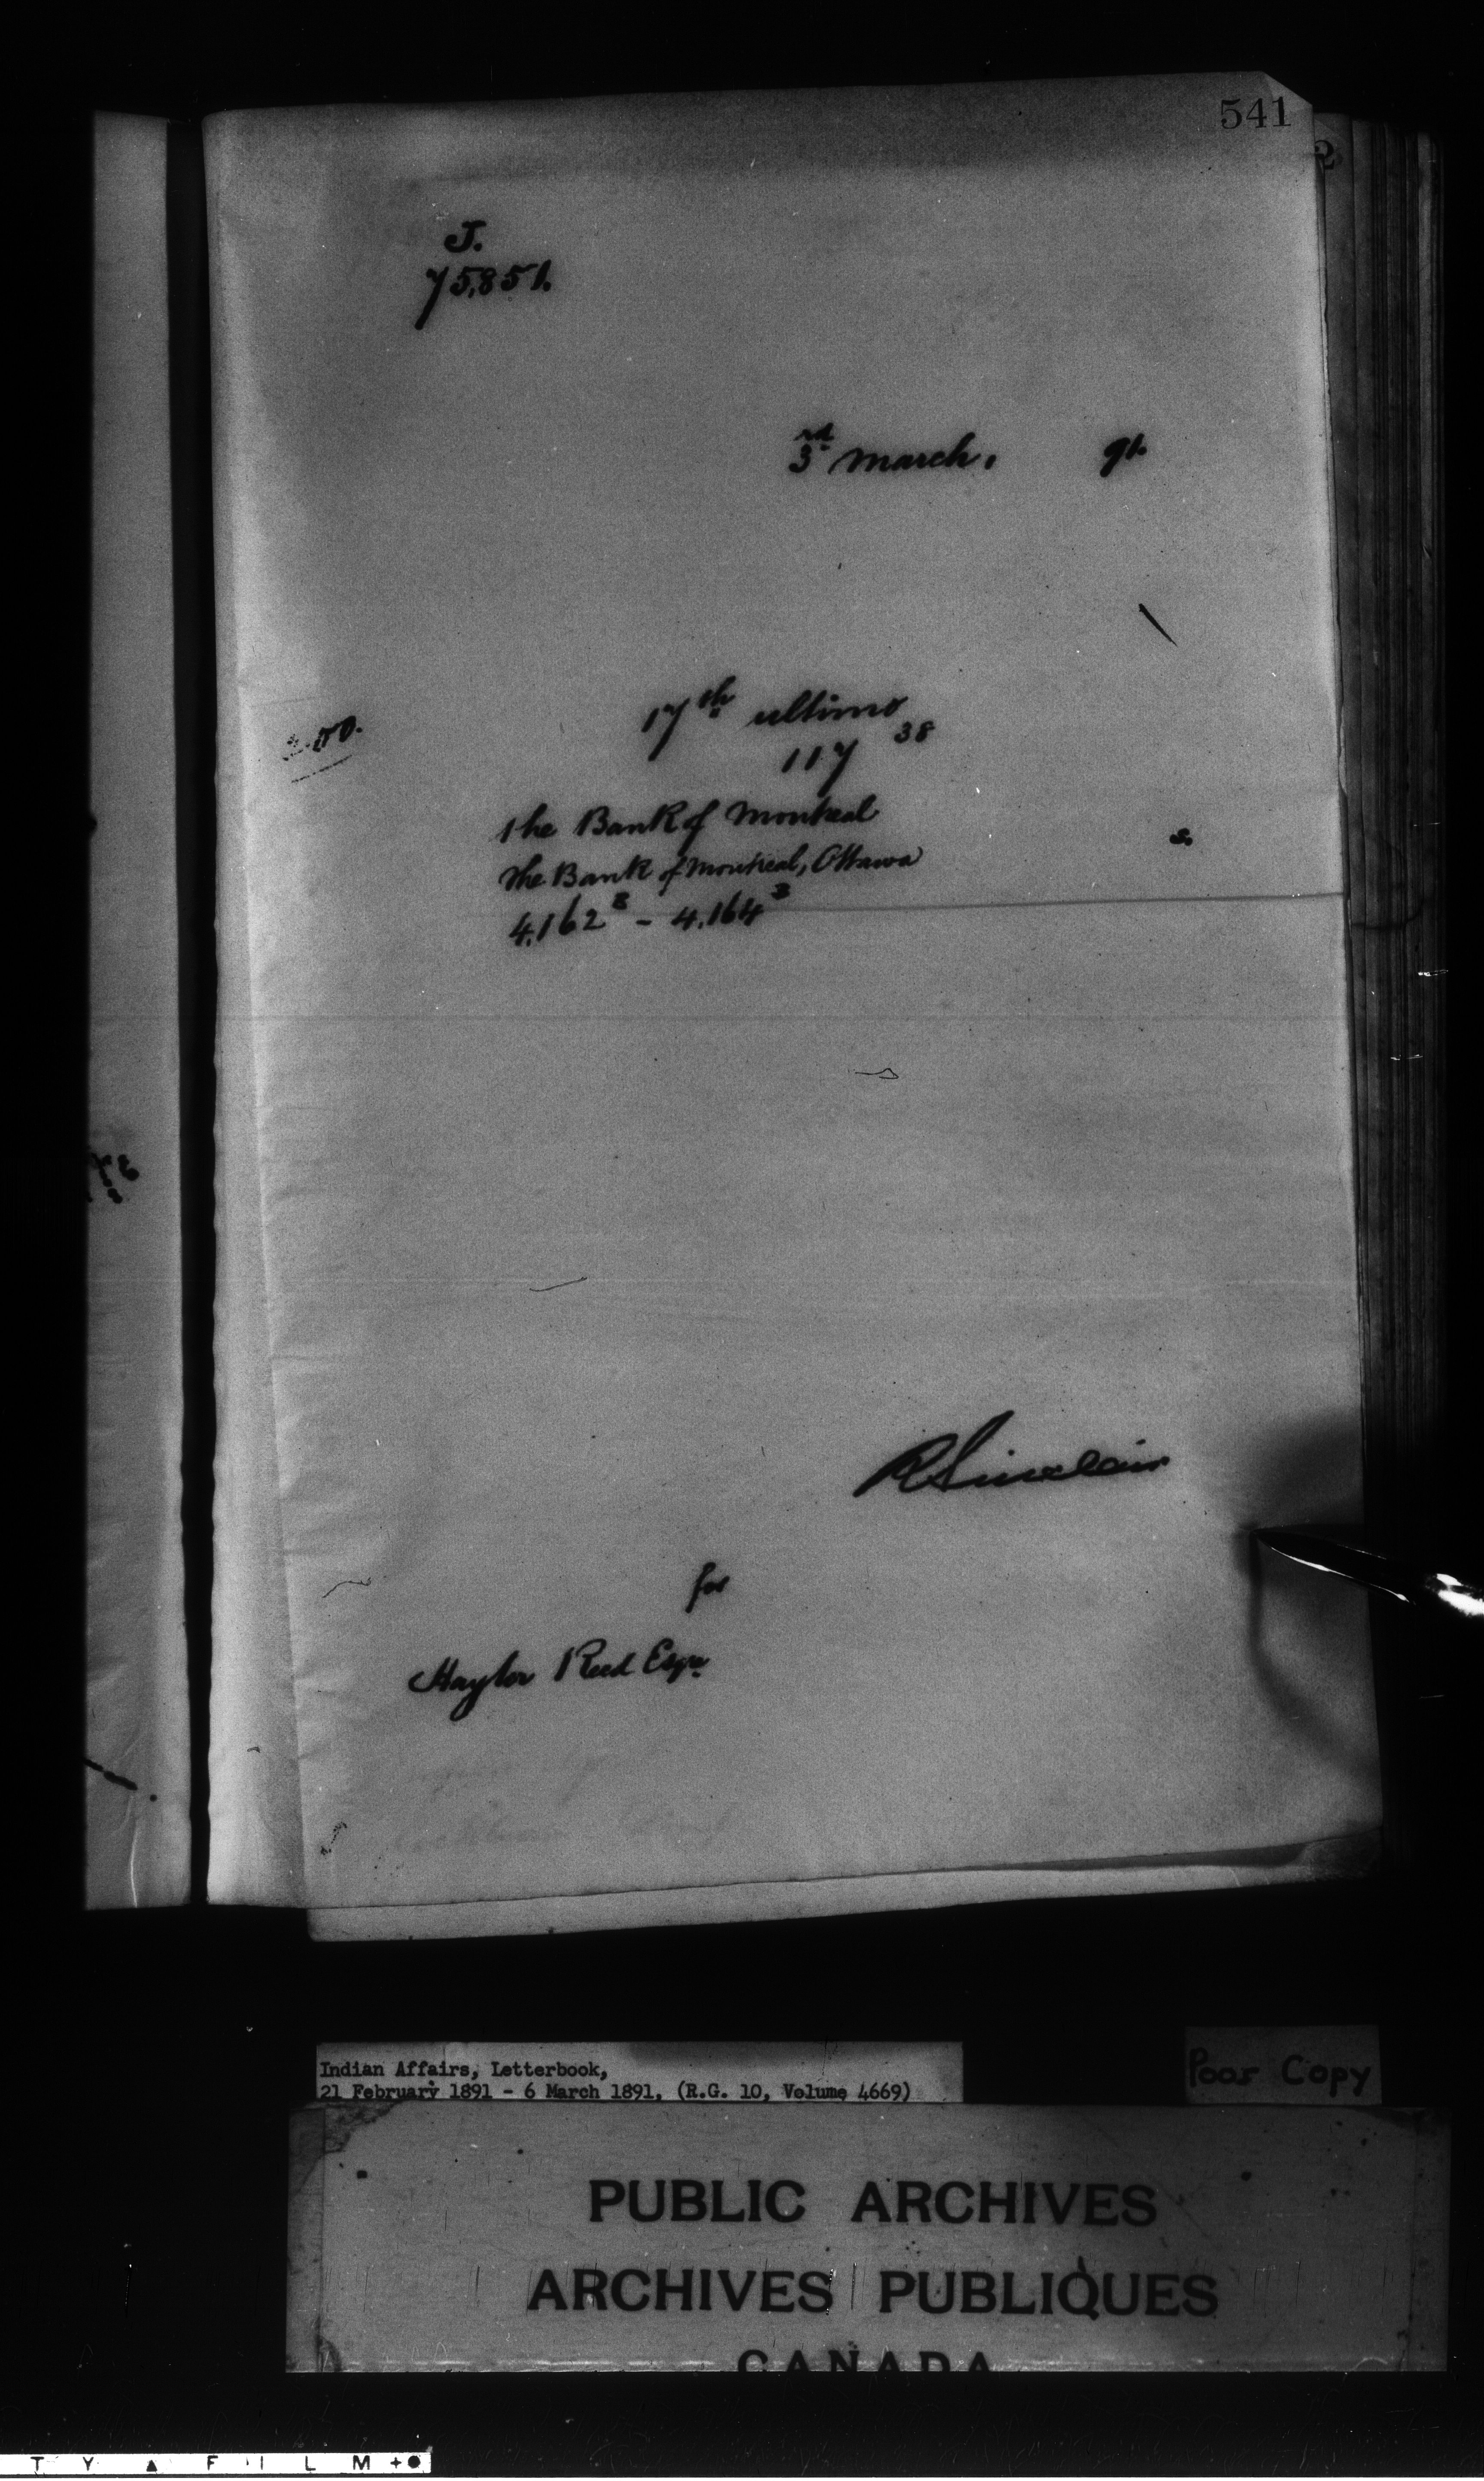 541
J.
75,851.
3rd March, 91.
17th ultimo
117 38
The Bank of Montreal
s.
The Bank of Montreal, Ottawa
4,162 8 - 4,164 3
RSinclair
for
Haylor Reed Esqre
Indian Affairs, Letterbook,
21 February 1891 - 6 March 1891, (R.G. 10, Volume 4669)
Poor Copy
PUBLIC ARCHIVES
ARCHIVES PUBLIQUES
CANADA
T Y ▲ F I L M +●